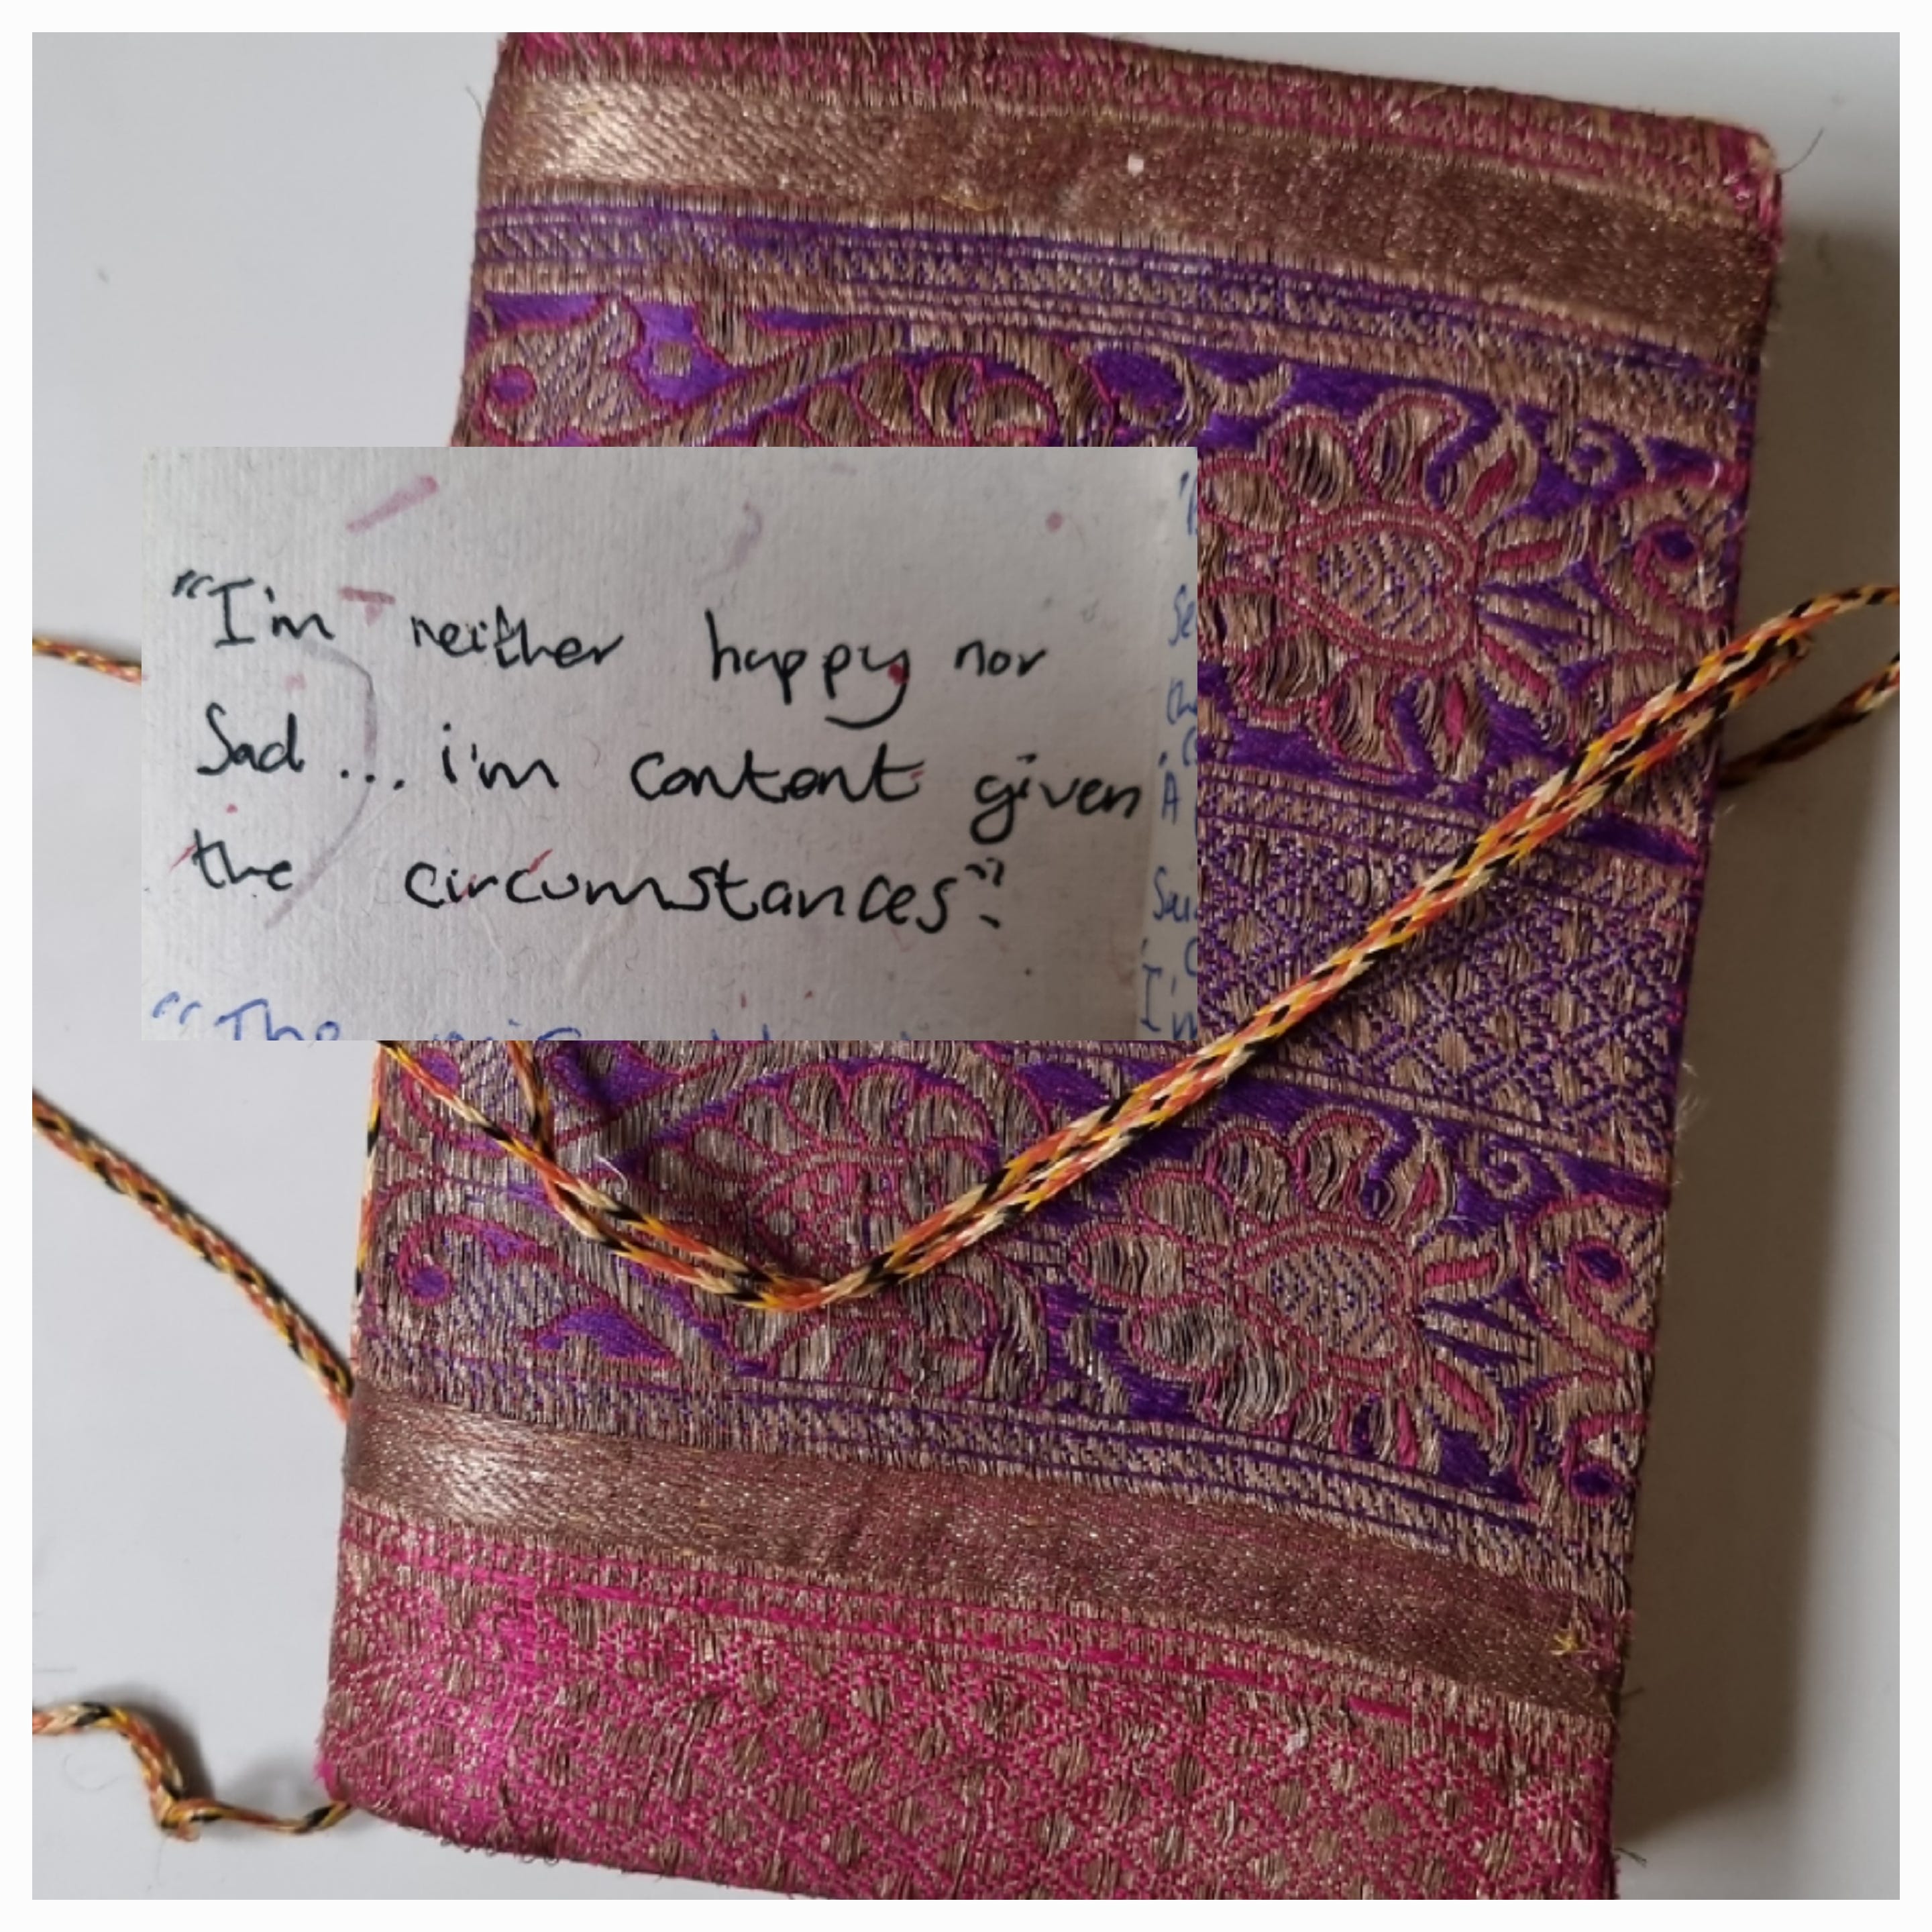 "I'm neither happy nor
Sad... i'm content given
the circumstances".
"The